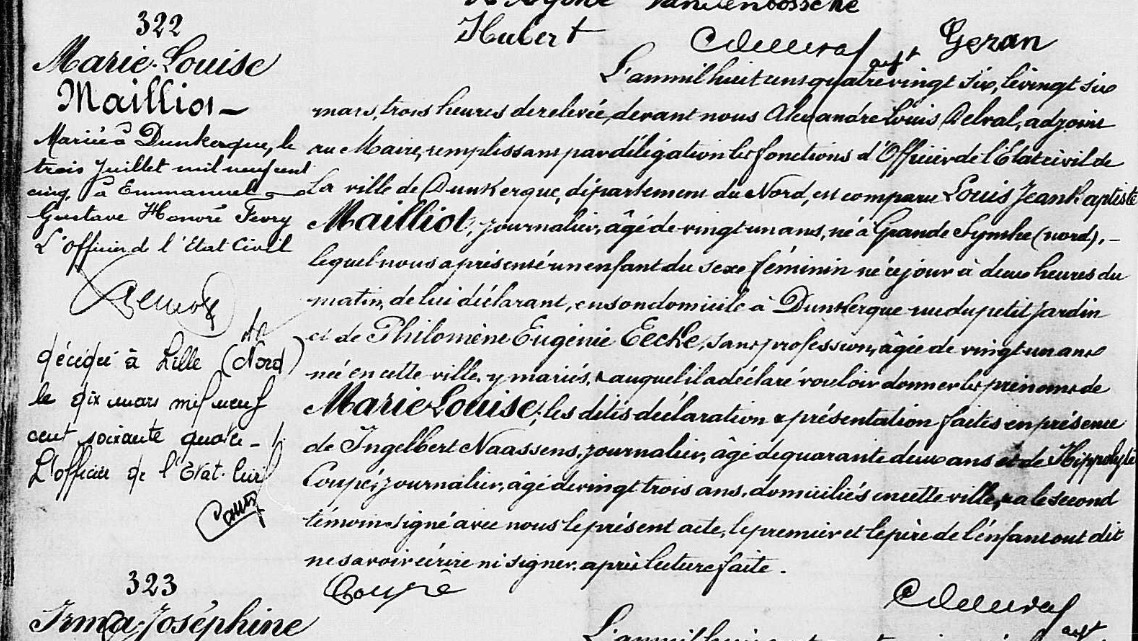 Vandenbossche
Hubert
Geran
322
Marie-Louise
Mailliot
Mariée à Dunkerque, le
trois Juillet mil neuf cent
cinq, à Emmanuel
Gustave Honoré Fevry
L'officier de l'Etat Civil
décédée à Lille (Nord)
le dix mars mil neuf
cent soixante quatre
L'officier de l'Etat-Civil
L'an mil huit cent quatre vingt six, le vingt six
mars, trois heures de relevée, devant nous Alexandre Louis Delval, adjoint
au Maire, remplissant par délégation les fonctions d'Officier de l'Etat civil de
la ville de Dunkerque, département du Nord, est comparu Louis Jean Baptiste
Mailliot, journalier, âgé de vingt un ans, né à Grande Synthe (nord),
lequel nous a présenté un enfant du sexe féminin né ce jour à deux heures du
matin, de lui déclarant, en son domicile à Dunkerque rue du petit Jardin
et de Philomène Eugénie Eecke, sans profession, âgée de vingt un ans
née en cette ville, y mariés, & auquel il a déclaré vouloir donner les prénoms de
Marie Louise; les dites déclaration & présentation faites en présence
de Ingelbert Naassens, journalier, âgé de quarante deux ans et de Hippolyte
Coupé, journalier, âgé de vingt trois ans, domiciliés en cette ville, & a le second
témoin signé avec nous le présent acte, le premier et le père de l'enfant ont dit
ne savoir écrire ni signer, après lecture faite.
Coupé
323
Irma-Joséphine
L'an mil huit cent